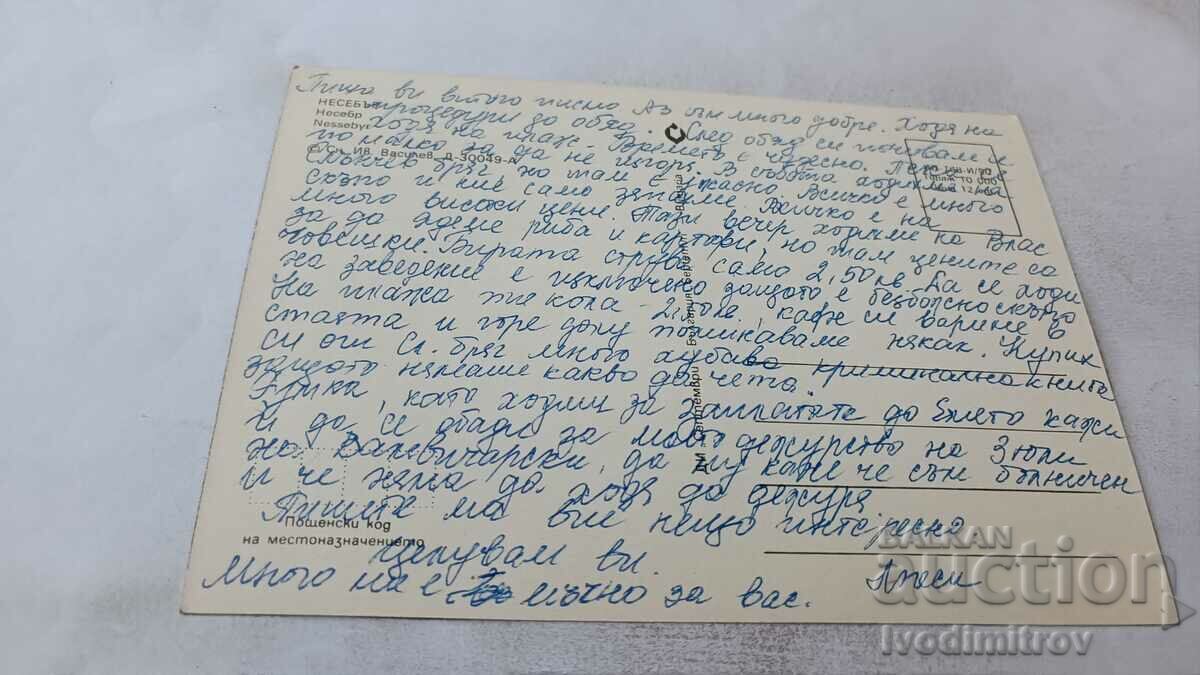 Пиша ви второ писмо Аз съм много добре. Ходя на
процедури до обяд. След обяд си почивам и
ходя на плаж. Времето е чудесно. Пека се
по малко за да не изгоря. В събота ходихме на
Слънчев бряг, но там е ужасно. Всичко е много
скъпо и ние само зяпахме. Всичко е на
много високи цени. Тази вечер ходихме на Влас
за да ядеме риба и картофи, но там цените са
човешки. Бирата струва само 2,50 лв. Да се ходи
на заведение е изключено защото е безбожно скъпо
На плажа пие кола - лв, кафе си вариме в
стаята и горе долу поминаваме някак. Купих
си от Сл. бряг много хубава криминална книга
защото нямаше какво да чета.
като ходи за заплатата до кажи
й да се обади за мойто дежурство на 3 юли
на да му каже че съм болничен
и че няма да ходя да дежуря
Пишете ма вие нещо интересно
целувам ви.
Много ми е мъчно за вас.
НЕСЕБЪР
Несебр
Nessebyr
Сн. Ив. Василев Д-30049-А
Пощенски код
на местоназначението
BALKAN
auction
Ivodimitrov